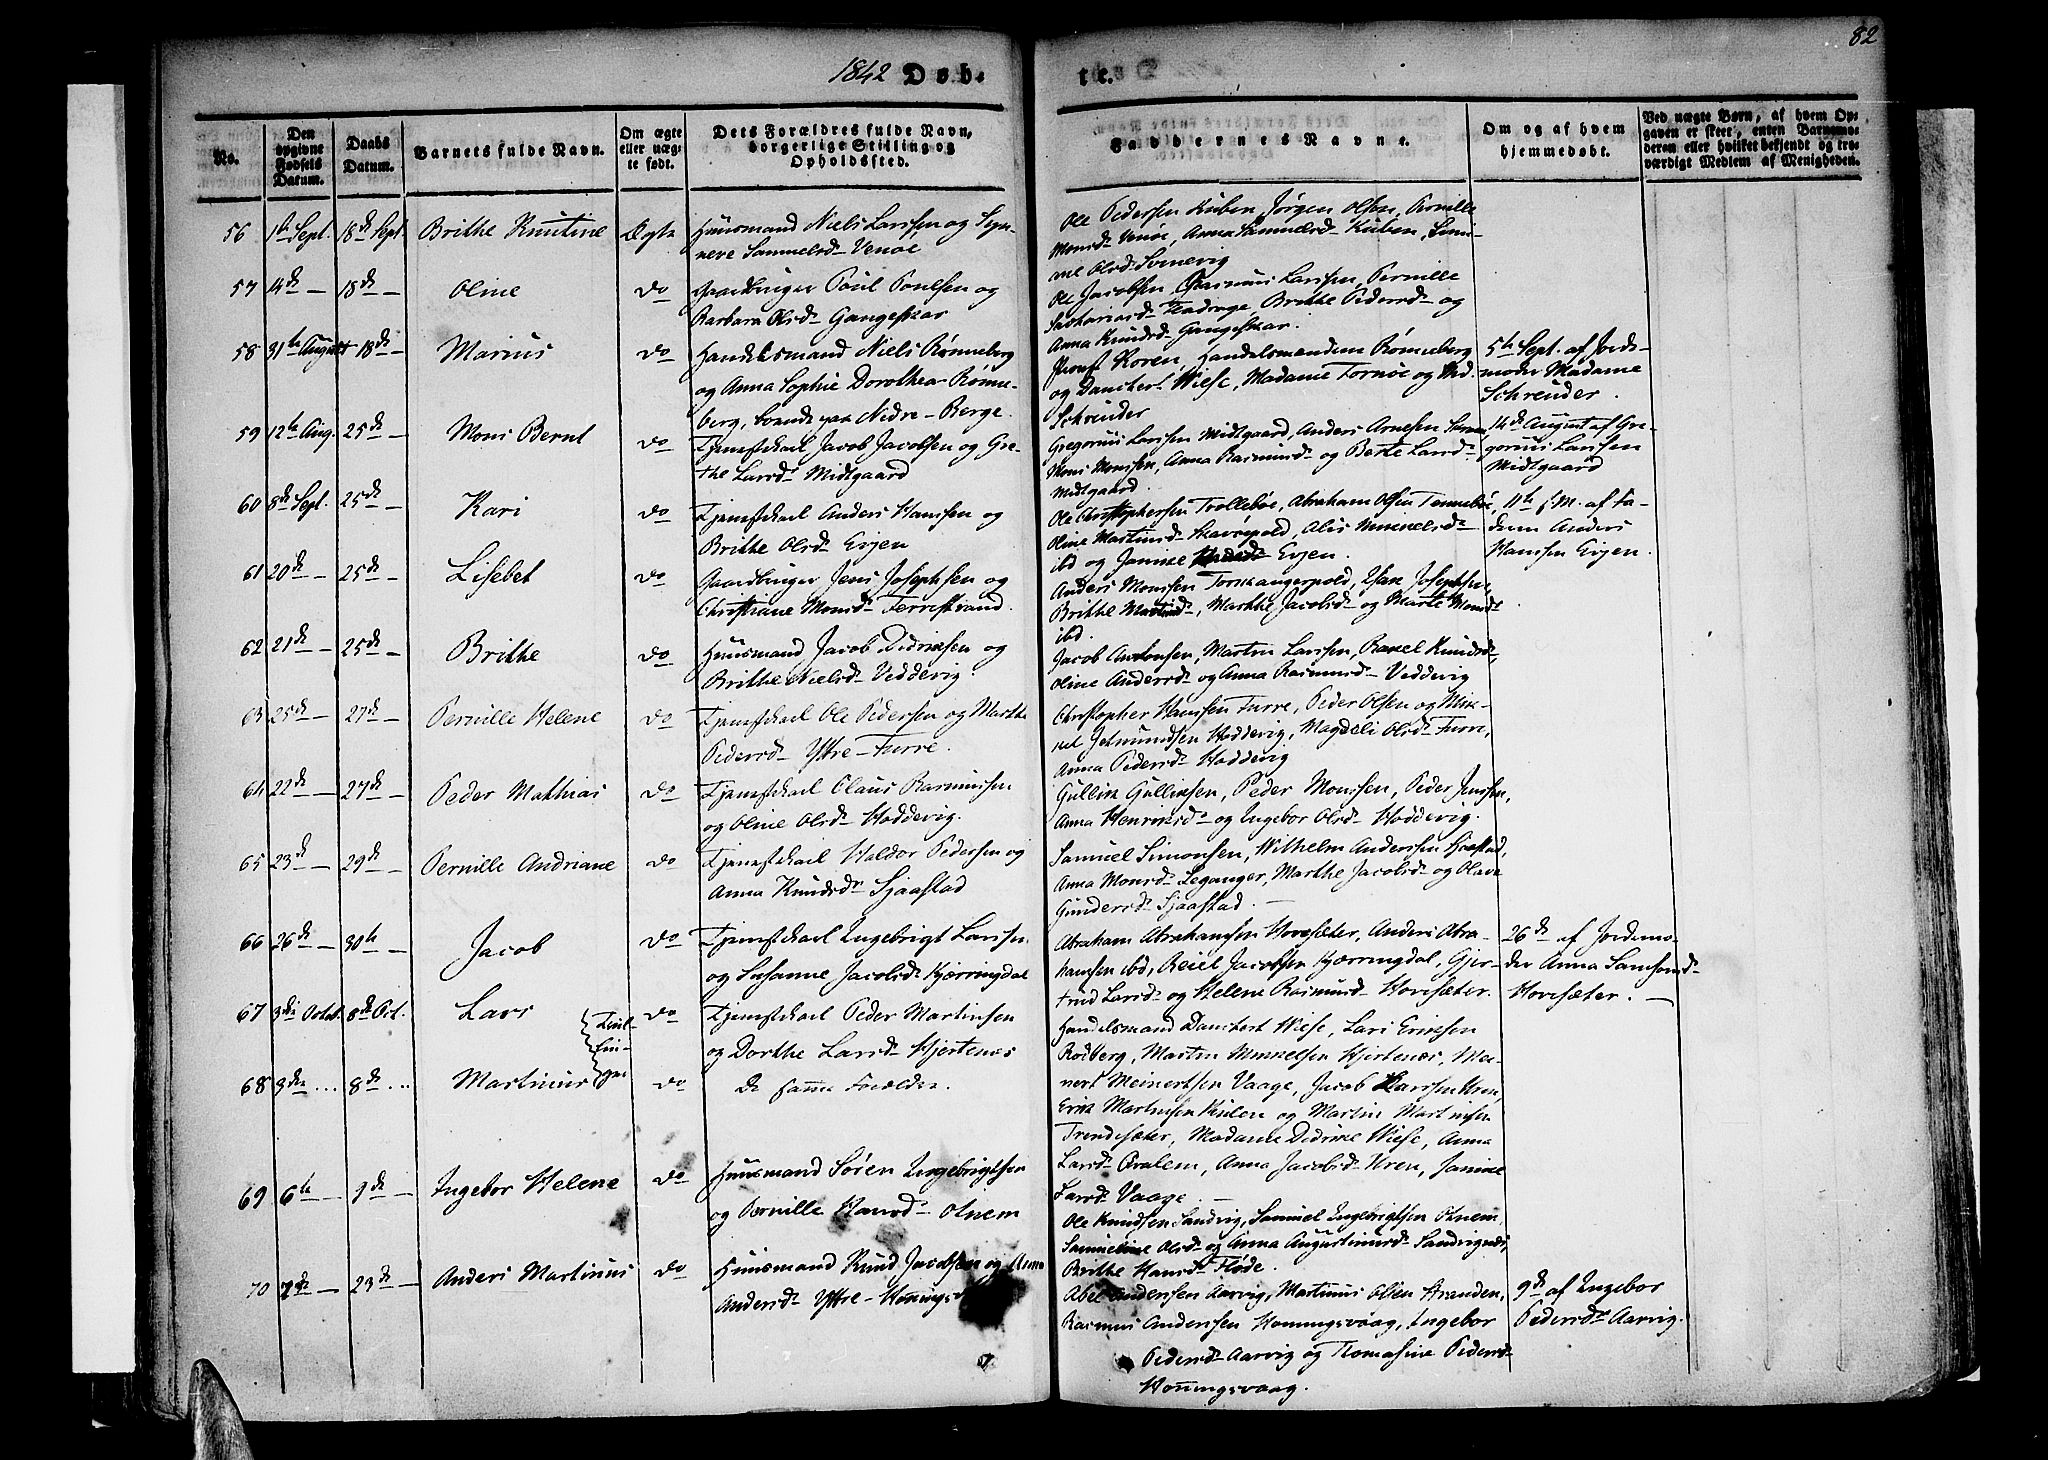 82
1842 Døb-
te.
No.
Den opgivne Fødsels Datum.
Daabs Datum.
Barnets fulde Navn.
Om ægte eller uægte født.
Dets Forældres fulde Navn, borgerlige Stilling og Opholdssted.
Faddernes Navne.
Om og af hvem hjemmedøbt.
Ved uægte Børn, af hvem Opgaven er skeet, enten Barnemoderen eller hvilket bekjendt og troværdigt Medlem af Menigheden.
56 1te Sept. 18de Sept. Brithe Knutine Ægte Huusmand Niels Larssen og Syn-
neve Sammelsd. Venøe
Ole Pedersen Kuben, Jørgen Olsen, Pernille
Monsd. Venøe, Anna Sammelsd. Kuben,
Olsd. Svinevig
57 14de — 18de — Oline do Gaardbruger Poul Poulsen og
Barbara Olsd. Gangeskar
Ole Jacobsen, Rasmus Larssen, Pernille
Sachariasd. Brithe Pedersd. og
Anna Knudsd. Gangeskar.
58 31te August 18de — Marius do Handelsmand Niels Rønneberg
og Anna Sophie Dorothea Rønne-
berg, boende paa Nedre-Berge.
Provst Koren, Handelsmændene Rønneberg
og Danchert Wiese, Madame Tornøe og Md.
Schreuder
5te Sept. af Jorde-
moder Madame
Schreuder.
59 12te Aug. 25de — Mons Bernt do Tjenestekarl Jacob Jacobsen og Gre-
the Larsd. Midtgaard
Gregorius Larssen Midtgaard, Anders Arnesen
Mons Monssen, Anna Rasmusd. og Berte Larsd.
Midtgaard.
14de August af Gre-
gorius Larssen
Midtgaard
60 8de Sept. 25de — Kari do Tjenestekarl Anders Hanssen og
Brithe Olsd. Ervjen
Ole Christophersen Trollebøe, Abraham Olsen Tennebøe,
Oline Martinsd. Skavøepold, Alis Mikkelsd.
ibd og Janikke Ervjen.
11te s. M. af Fa-
deren Anders
Hanssen Ervjen.
61 20de — 25de — Lisebet do Gaardbruger Jens Josephsen og
Christiane Monsd. Færrestrand.
Anders Monssen Torskangerpold, Isak Josephsen,
Brithe Martinsd., Marthe Jacobsd. og Marte Monsd.
ibd.
62 21de — 25de — Brithe do Huusmand Jacob Didriksen og
Brithe Nielsd. Veddevig.
Jacob Antonsen, Martin Larssen, Rakel Knudsd.,
Oline Andersd. og Anna Rasmusd. Veddevig
63 25de — 27de — Pernille Helene do Tjenestekarl Ole Pedersen og Marthe
Pedersd. Yttre-Furre.
Christopher Hanssen Furre, Peder Olsen og Mik-
kel Jetmundsen Hoddevig, Magdeli Olsd. Furre,
Anna Pedersd. Hoddevig
64 22de — 27de — Peder Mathias do Tjenestekarl Claus Rasmussen
og Oline Olsd. Hoddevig.
Gullik Gulliksen, Peder Monssen, Peder Jenssen,
Anna Henriksd. og Ingebor Olsd. Hoddevig.
65 23de — 29de — Pernille Andriane do Tjenestekarl Haldor Pedersen og
Anna Knudsd. Sjaastad
Samuel Simonsen, Wilhelm Anderssen Sjaastad,
Anna Monsd. Leganger, Marthe Jacobsd. og Olave
Gundersd. Sjaastad.
66 26de — 30te — Jacob do Tjenestekarl Ingebrigt Larssen
og Susanne Jacobsd. Kjerringdal
Abraham Abrahamsen Hovesæter, Anders Abra-
hamsen ibd, Reiel Jacobsen Kjerringdal, Gjer-
trud Larsd. og Helene Rasmusd. Hovesæter.
26de af Jordemo-
der Anna Samsonsd.
Hovesæter. —
67 3die Octob. 8de Oct. Lars do Tjenestekarl Peder Martinsen
og Dorthe Larsd. Hjertenes
Tvil-
lin-
ger
Handelsmand Danchert Wiese, Lars Eriksen
Rødberg, Martin Mikkelsen Hjertenæs, Mei-
nert Meinertsen Vaage, Jacob Larssen Uren,
Erik Martinsen Kulen og Martin Martinsen
Trendesæter, Madame Didrikke Wiese, Anna
Larsd. Oralem, Anna Jacobsd. Uren, Janikke
Larsd. Vaage. —
68 3die ... 8de ... Martinus do De samme Forældre.
69 6te — 9de — Ingebor Helene do Huusmand Søren Ingebrigtsen
og Pernille Hansd. Otnem
Ole Knudsen Sandvig, Samuel Ingebrigtsen Otnem,
Sammeline Olsd. og Anna Augustinusd. Sandvignes,
Brithe Hansd. Fløde.
70 7de — 23de — Anders Martinus do Huusmand Knud Jacobsen og Anna
Andersd. Yttre-Honningsv
Abel Anderssen Aarvig, Martinus Olsen Stranden,
Rasmus Anderssen Honningsvaag, Ingebor
Pedersd. Aarvig og Thomasine Pedersd.
Honningsvaag.
9de af Ingebor
Pedersd. Aarvig.